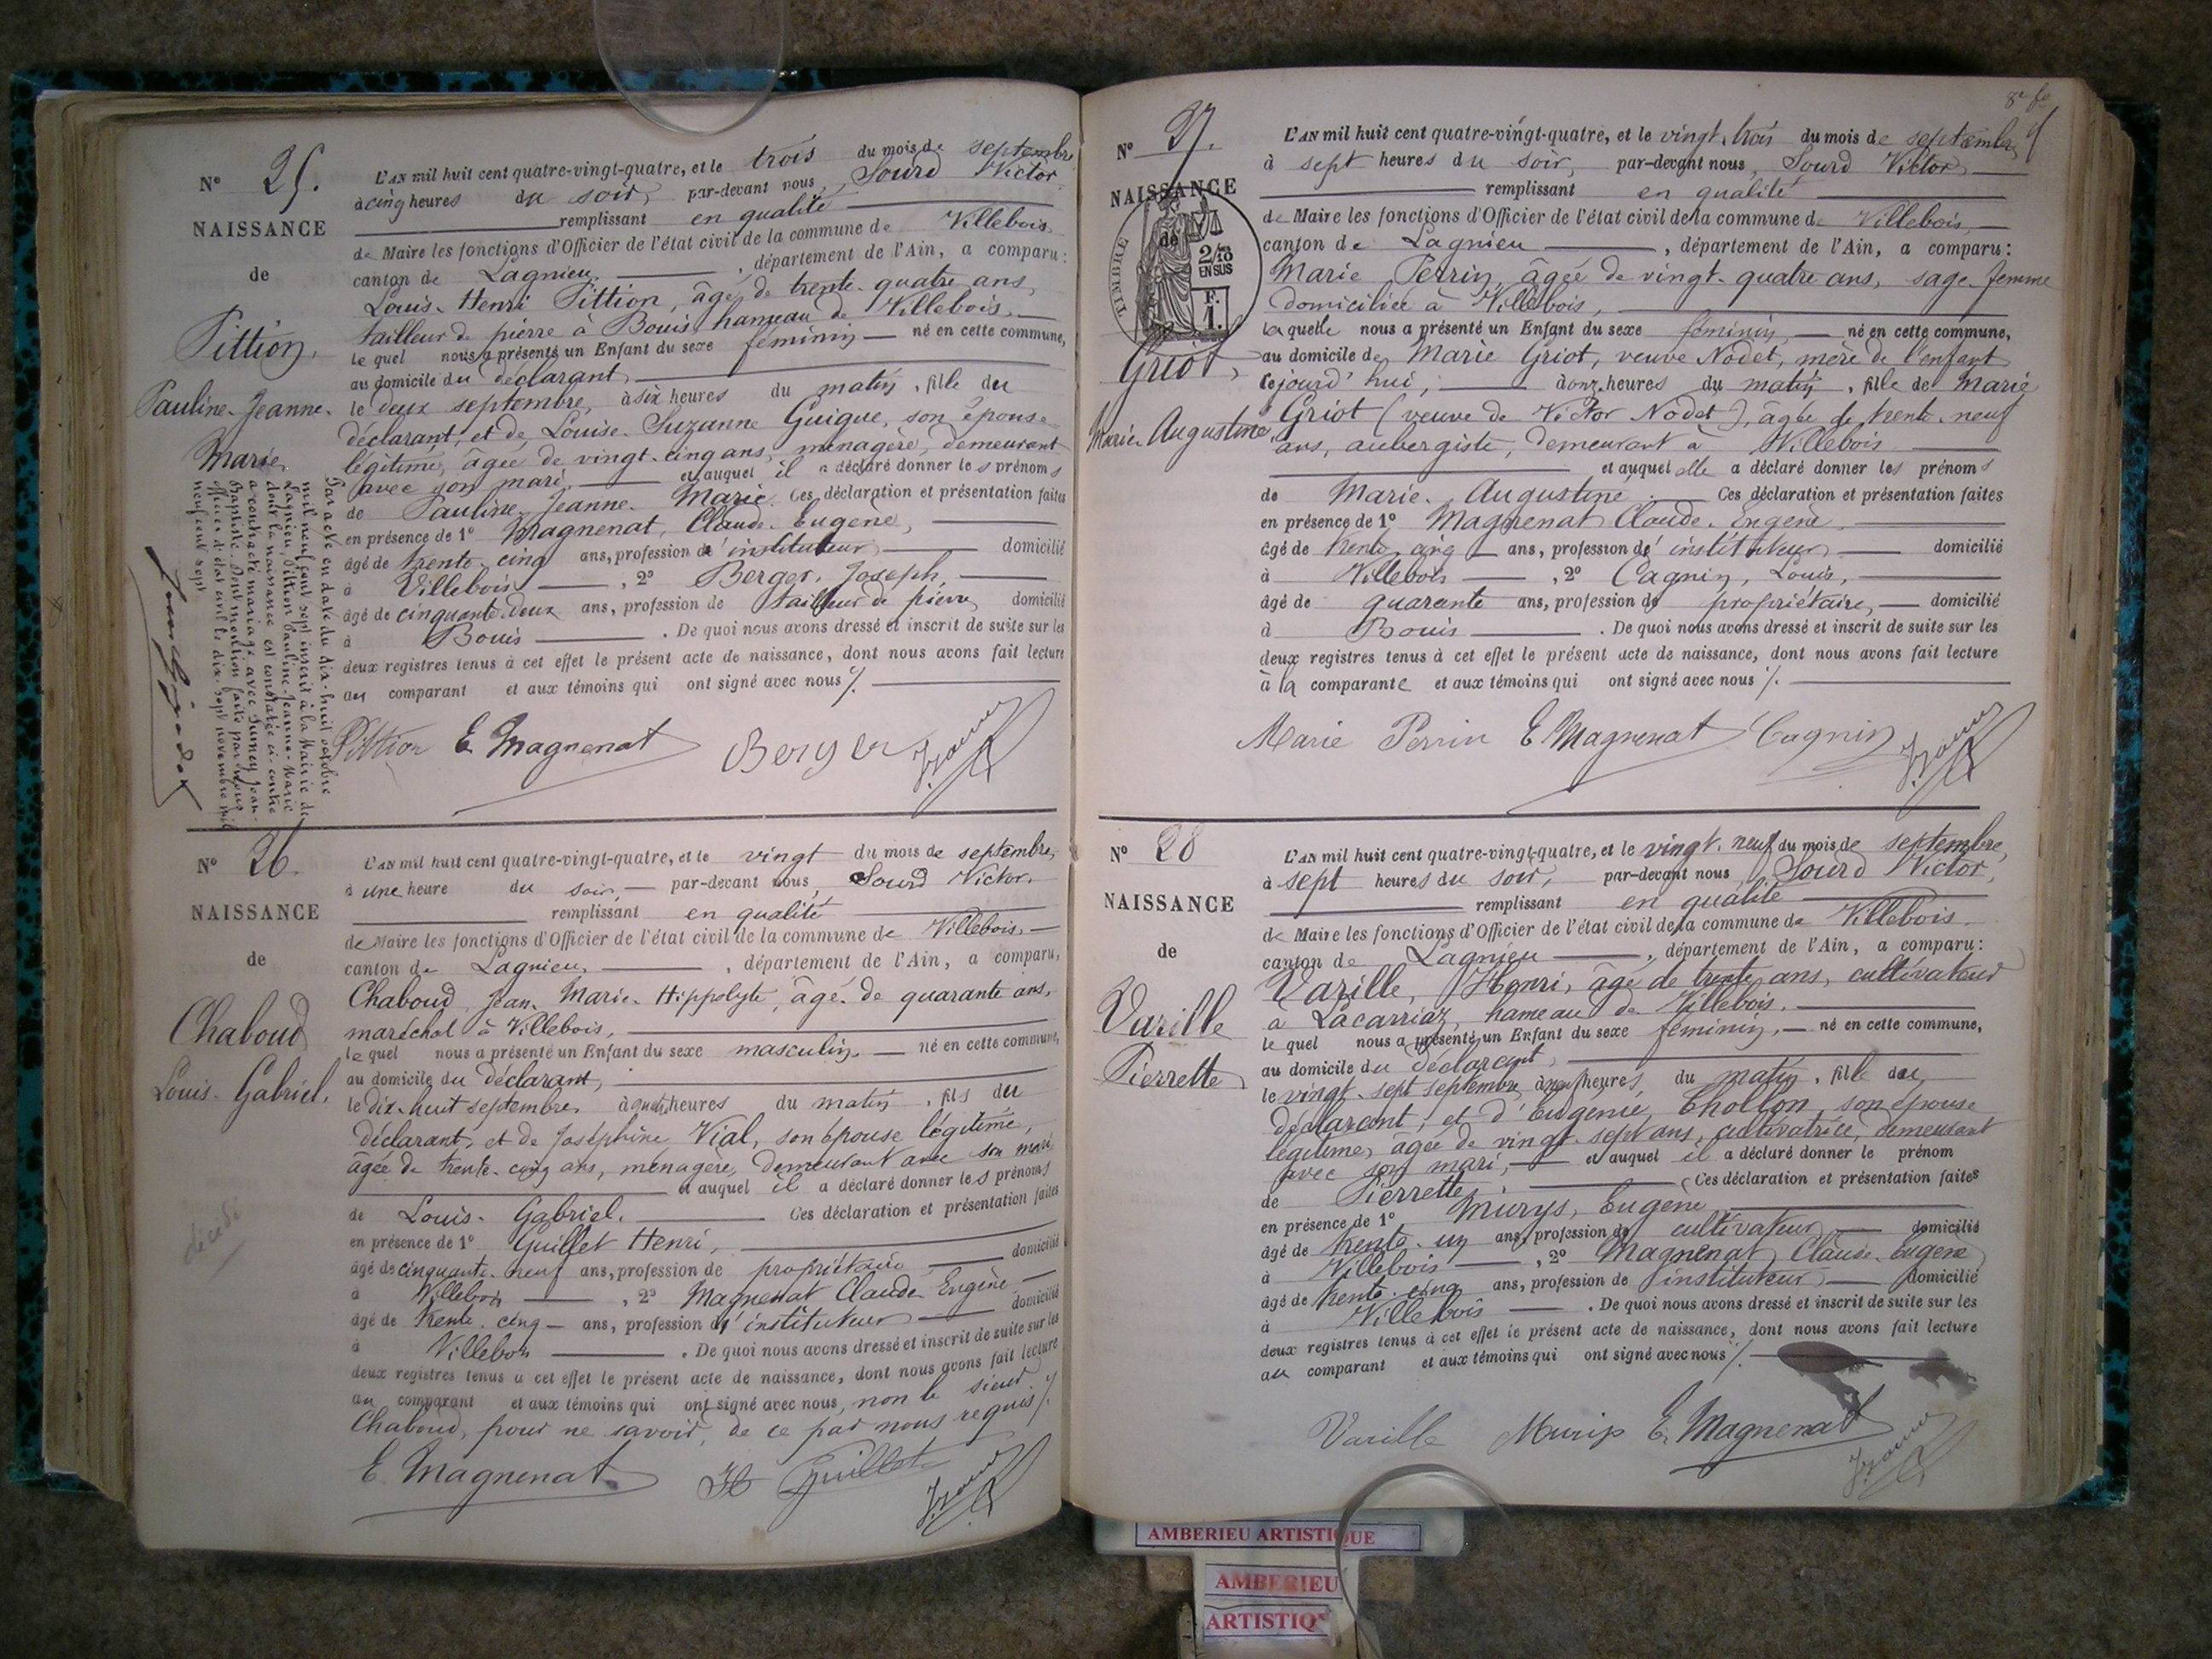 N° 25.
NAISSANCE
de
Pittion,
Pauline-Jeanne-
Marie
L'AN mil huit cent quatre-vingt-quatre, et le trois du mois de septembre
à cinq heures du soir, par-devant nous, Sourd Victor
remplissant en qualité
de Maire les fonctions d'Officier de l'état civil de la commune de Villebois,
canton de Lagnieu, département de l'Ain, a comparu:
Louis-Henri Pittion, âgé de trente-quatre ans,
tailleur de pierre à Bouis hameau de Villebois,
lequel nous a présenté un Enfant du sexe féminin né en cette commune,
au domicile du déclarant,
le deux septembre, à six heures du matin, fille du
déclarant, et de Louise-Suzanne Guigue, son épouse
légitime, âgée de vingt-cinq ans, ménagère, demeurant
avec son mari, et auquel il a déclaré donner les prénoms
de Pauline-Jeanne-Marie. Ces déclaration et présentation faites
en présence de 1° Magnenat, Claude-Eugène,
âgé de trente-cinq ans, profession d'instituteur domicilié
à Villebois, 2° Berger, Joseph,
âgé de cinquante-deux ans, profession de tailleur de pierre, domicilié
à Bouis. De quoi nous avons dressé et inscrit de suite sur les
deux registres tenus à cet effet le présent acte de naissance, dont nous avons fait lecture
au comparant et aux témoins qui ont signé avec nous ./.
Par acte en date du dix-huit octobre
mil neuf cent sept inscrit à la Mairie de
Lagnieu, Pittion Pauline-Jeanne-Marie
dont la naissance est constatée ci-contre
a contracté mariage avec Jean-
Baptiste. Dont mention faite par nous
officier d'état civil le dix-sept novembre mil
neuf cent sept
Pittion E. Magnenat Berger
N° 26.
NAISSANCE
de
Chaboud
Louis-Gabriel.
décédé
L'AN mil huit cent quatre-vingt-quatre, et le vingt du mois de septembre,
à une heure du soir, par-devant nous, Sourd Victor,
remplissant en qualité
de Maire les fonctions d'Officier de l'état civil de la commune de Villebois,
canton de Lagnieu, département de l'Ain, a comparu,
Chaboud, Jean-Marie-Hippolyte, âgé de quarante ans,
maréchal à Villebois,
lequel nous a présenté un Enfant du sexe masculin, né en cette commune,
au domicile du déclarant,
le dix-huit septembre, à quatre heures du matin, fils du
déclarant, et de Joséphine Vial, son épouse légitime,
âgée de trente-cinq ans, ménagère, demeurant avec son mari
et auquel il a déclaré donner les prénoms
de Louis-Gabriel. Ces déclaration et présentation faites
en présence de 1° Guillet Henri,
âgé de cinquante-neuf ans, profession de propriétaire domicilié
à Villebois, 2° Magnenat Claude-Eugène
âgé de trente-cinq ans, profession d'instituteur domicilié
à Villebois. De quoi nous avons dressé et inscrit de suite sur les
deux registres tenus à cet effet le présent acte de naissance, dont nous avons fait lecture
au comparant et aux témoins qui ont signé avec nous, non le sieur
Chaboud, pour ne savoir, de ce par nous requis ./.
E. Magnenat H Guillet
8e fe
N° 27.
NAISSANCE
de
TIMBRE
2/10
EN SUS
F.
1.
Griot,
Marie-Augustine
L'AN mil huit cent quatre-vingt-quatre, et le vingt-trois du mois de septembre,
à sept heures du soir, par-devant nous, Sourd Victor,
remplissant en qualité
de Maire les fonctions d'Officier de l'état civil de la commune de Villebois,
canton de Lagnieu, département de l'Ain, a comparu:
Marie Perrin, âgée de vingt-quatre ans, sage-femme
domiciliée à Villebois,
laquelle nous a présenté un Enfant du sexe féminin, né en cette commune,
au domicile de Marie Griot, veuve Nodet, mère de l'enfant
cejourd'hui, à onze heures du matin, fille de Marie
Griot (veuve de Victor Nodet), âgée de trente-neuf
ans, aubergiste, demeurant à Villebois
et auquel elle a déclaré donner les prénoms
de Marie-Augustine. Ces déclaration et présentation faites
en présence de 1° Magnenat Claude-Eugène.
âgé de trente-cinq ans, profession d'instituteur domicilié
à Villebois, 2° Cagnin, Louis,
âgé de quarante ans, profession de propriétaire, domicilié
à Bouis. De quoi nous avons dressé et inscrit de suite sur les
deux registres tenus à cet effet le présent acte de naissance, dont nous avons fait lecture
à la comparante et aux témoins qui ont signé avec nous ./.
Marie Perrin E. Magnenat Cagnin
N° 28
NAISSANCE
de
Varille
Pierrette
L'AN mil huit cent quatre-vingt-quatre, et le vingt-neuf du mois de septembre,
à sept heures du soir, par-devant nous, Sourd Victor,
remplissant en qualité
de Maire les fonctions d'Officier de l'état civil de la commune de Villebois.
canton de Lagnieu, département de l'Ain, a comparu:
Varille, Henri, âgé de trente ans, cultivateur
à Lacarriaz, hameau de Villebois,
lequel nous a présenté un Enfant du sexe féminin, né en cette commune,
au domicile du déclarant,
le vingt-sept septembre, à neuf heures du matin, fille du
déclarant, et d'Eugénie Chollon, son épouse
légitime, âgée de vingt-sept ans, cultivatrice, demeurant
avec son mari, et auquel il a déclaré donner le prénom
de Pierrette. Ces déclaration et présentation faites
en présence de 1° Murys, Eugène
âgé de trente-un ans, profession de cultivateur domicilié
à Villebois, 2° Magnenat Claude-Eugène
âgé de trente-cinq ans, profession de instituteur domicilié
à Villebois. De quoi nous avons dressé et inscrit de suite sur les
deux registres tenus à cet effet le présent acte de naissance, dont nous avons fait lecture
au comparant et aux témoins qui ont signé avec nous ./.
Varille E. Magnenat
AMBERIEU ARTISTIQUE
AMBERIEU
ARTISTIQ